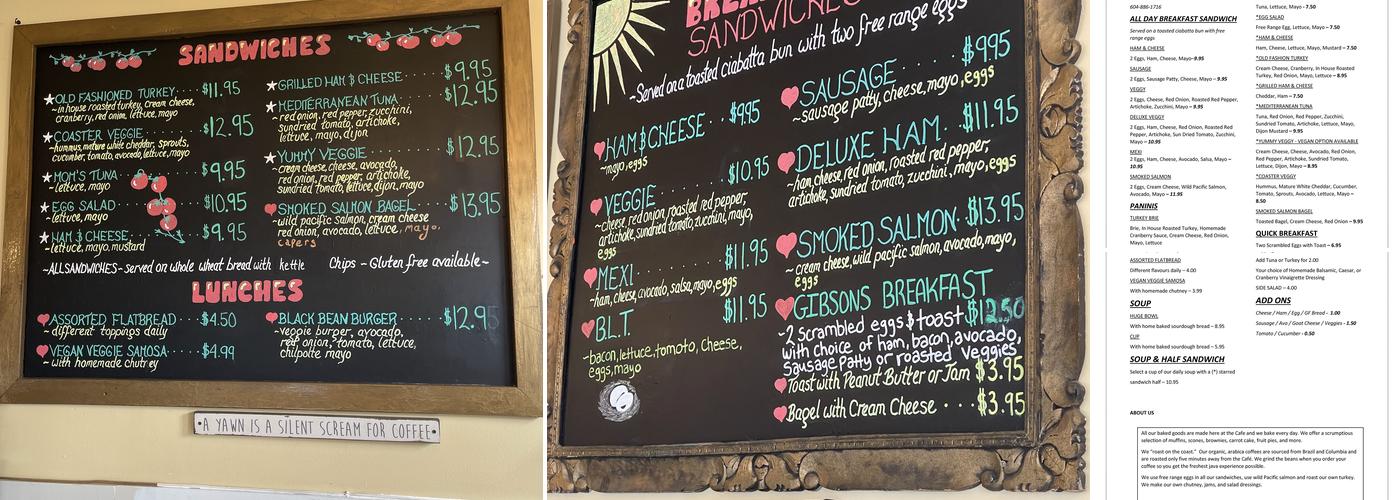 SANDWICHES
OLD FASHIONED TURKEY $11.95
~in house roasted turkey, cream cheese,
cranberry, red onion, lettuce, mayo
COASTER VEGGIE $12.95
~hummus, mature white cheddar, sprouts,
cucumber, tomato, avocado, lettuce, mayo
MOM'S TUNA $9.95
~lettuce, mayo
EGG SALAD $10.95
~lettuce, mayo
HAM & CHEESE $9.95
~lettuce, mayo, mustard
GRILLED HAM & CHEESE $9.95
MEDITERRANEAN TUNA $12.95
~red onion, red pepper, zucchini,
sundried tomato, artichoke,
lettuce, mayo, dijon
YUMMY VEGGIE $12.95
~cream cheese, cheese, avocado,
red onion, red pepper, artichoke,
sundried tomato, lettuce, dijon, mayo
SMOKED SALMON BAGEL $13.95
~wild pacific salmon, cream cheese
red onion, avocado, lettuce, mayo,
capers
~ALL SANDWICHES - served on whole wheat bread with kettle Chips ~ Gluten free available~
LUNCHES
ASSORTED FLATBREAD $4.50
~ different toppings daily
VEGAN VEGGIE SAMOSA $4.99
~ with homemade chutney
BLACK BEAN BURGER $12.95
~veggie burger, avocado,
red onion, tomato, lettuce,
chilpolte mayo
A YAWN IS A SILENT SCREAM FOR COFFEE
SANDWICHES
~Served on a toasted ciabatta bun with two free range eggs
HAM & CHEESE $9.95
~mayo, eggs
VEGGIE $10.95
~cheese, red onion, roasted red pepper,
artichoke, sundried tomato, zucchini, mayo,
eggs
MEXI $11.95
~ham, cheese, avocado, salsa, mayo, eggs
B.L.T. $11.95
~bacon, lettuce, tomoto, cheese,
eggs, mayo
SAUSAGE $9.95
~sausage patty, cheese, mayo, eggs
DELUXE HAM $11.95
~ham, cheese, red onion, roasted red pepper,
artichoke, sundried tomato, zucchini, mayo, eggs
SMOKED SALMON $13.95
~ cream cheese, wild pacific salmon, avocado, mayo,
eggs
GIBSONS BREAKFAST
~2 Scrambled eggs & toast $12.50
with choice of ham, bacon, avocado,
Sausage Patty or roasted Veggies
Toast with Peanut Butter or Jam $3.95
Bagel with Cream Cheese $3.95
604-886-1716
ALL DAY BREAKFAST SANDWICH
Served on a toasted ciabatta bun with free
range eggs
HAM & CHEESE
2 Eggs, Ham, Cheese, Mayo-9.95
SAUSAGE
2 Eggs, Sausage Patty, Cheese, Mayo – 9.95
VEGGY
2 Eggs, Cheese, Red Onion, Roasted Red Pepper,
Artichoke, Zucchini, Mayo – 9.95
DELUXE VEGGY
2 Eggs, Ham, Cheese, Red Onion, Roasted Red
Pepper, Artichoke, Sun Dried Tomato, Zucchini,
Mayo – 10.95
MEXI
2 Eggs, Ham, Cheese, Avocado, Salsa, Mayo –
10.95
SMOKED SALMON
2 Eggs, Cream Cheese, Wild Pacific Salmon,
Avocado, Mayo – 11.95
PANINIS
TURKEY BRIE
Brie, In House Roasted Turkey, Homemade
Cranberry Sauce, Cream Cheese, Red Onion,
Mayo, Lettuce
Tuna, Lettuce, Mayo - 7.50
*EGG SALAD
Free Range Egg, Lettuce, Mayo – 7.50
*HAM & CHEESE
Ham, Cheese, Lettuce, Mayo, Mustard – 7.50
*OLD FASHION TURKEY
Cream Cheese, Cranberry, In House Roasted
Turkey, Red Onion, Mayo, Lettuce – 8.95
*GRILLED HAM & CHEESE
Cheddar, Ham – 7.50
*MEDITERRANEAN TUNA
Tuna, Red Onion, Red Pepper, Zucchini,
Sundried Tomato, Artichoke, Lettuce, Mayo,
Dijon Mustard – 9.95
*YUMMY VEGGY - VEGAN OPTION AVAILABLE
Cream Cheese, Cheese, Avocado, Red Onion,
Red Pepper, Artichoke, Sundried Tomato,
Lettuce, Dijon, Mayo – 8.95
*COASTER VEGGY
Hummus, Mature White Cheddar, Cucumber,
Tomato, Sprouts, Avocado, Lettuce, Mayo –
8.50
SMOKED SALMON BAGEL
Toasted Bagel, Cream Cheese, Red Onion – 9.95
QUICK BREAKFAST
Two Scrambled Eggs with Toast – 6.95
ASSORTED FLATBREAD
Different flavours daily – 4.00
VEGAN VEGGIE SAMOSA
With homemade chutney – 3.99
SOUP
HUGE BOWL
With home baked sourdough bread – 8.95
CUP
With home baked sourdough bread – 5.95
SOUP & HALF SANDWICH
Select a cup of our daily soup with a (*) starred
sandwich half – 10.95
Add Tuna or Turkey for 2.00
Your choice of Homemade Balsamic, Caesar, or
Cranberry Vinaigrette Dressing
SIDE SALAD – 4.00
ADD ONS
Cheese / Ham / Egg / GF Bread - 1.00
Sausage / Avo / Goat Cheese / Veggies - 1.50
Tomato / Cucumber - 0.50
ABOUT US
All our baked goods are made here at the Cafe and we bake every day. We offer a scrumptious
selection of muffins, scones, brownies, carrot cake, fruit pies, and more.
We "roast on the coast." Our organic, arabica coffees are sourced from Brazil and Columbia and
are roasted only five minutes away from the Café. We grind the beans when you order your
coffee so you get the freshest java experience possible.
We use free range eggs in all our sandwiches, use wild Pacific salmon and roast our own turkey.
We make our own chutney, jams, and salad dressings.